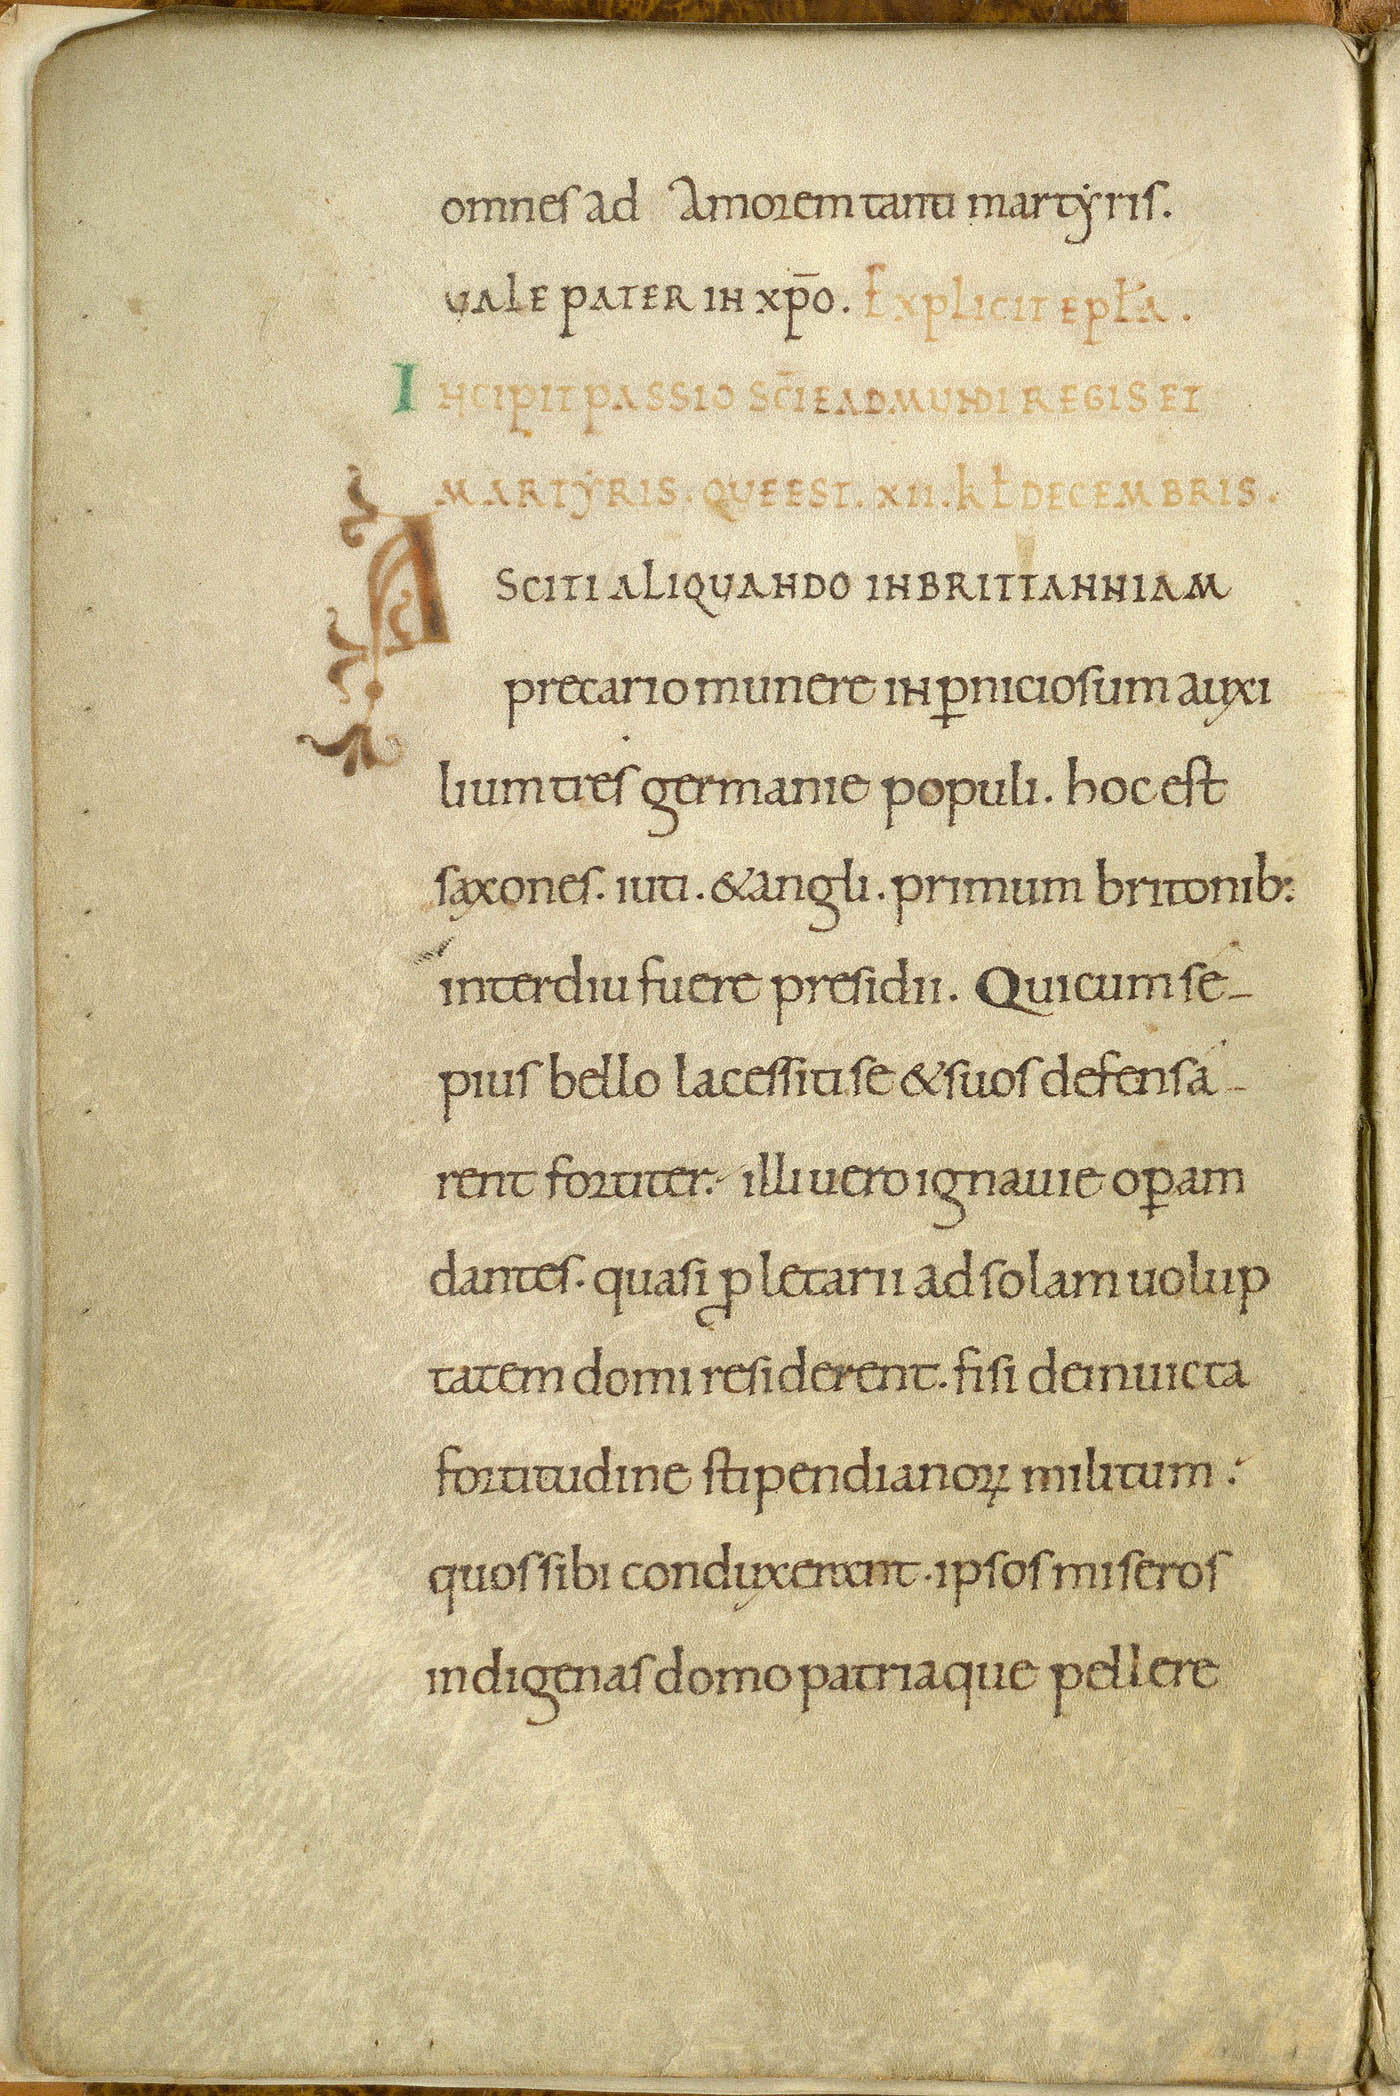 omnes ad amorem tanti martẏris.
UALE PATER IN XP̄O. Explicit epƚa.
INCIPIT PASSIO SC̄I EADMUNDI REGIS ET
MARTẎRIS. QUE EST. XII. KƚDECEMBRIS.
ASCITI ALIQUANDO IN BRITTANNIAM
precario munere in ꝑniciosum auxi
lium tres germanie populi. hoc est
saxones. iuti. & angli. primum britonib:
interdiu fuere presidii. Qui cum sé-
pius bello lacessiti se & suos defensá-
rent fortiter. illi uero ignauie oꝑam
dantes. quasi ꝓletarii ad solam uolup
tatem domi residerent. fisi de inuicta
fortitudine stipendiarioꝝ militum.
quos sibi conduxerant. ipsos miseros
indigenas domo patriaque pellere